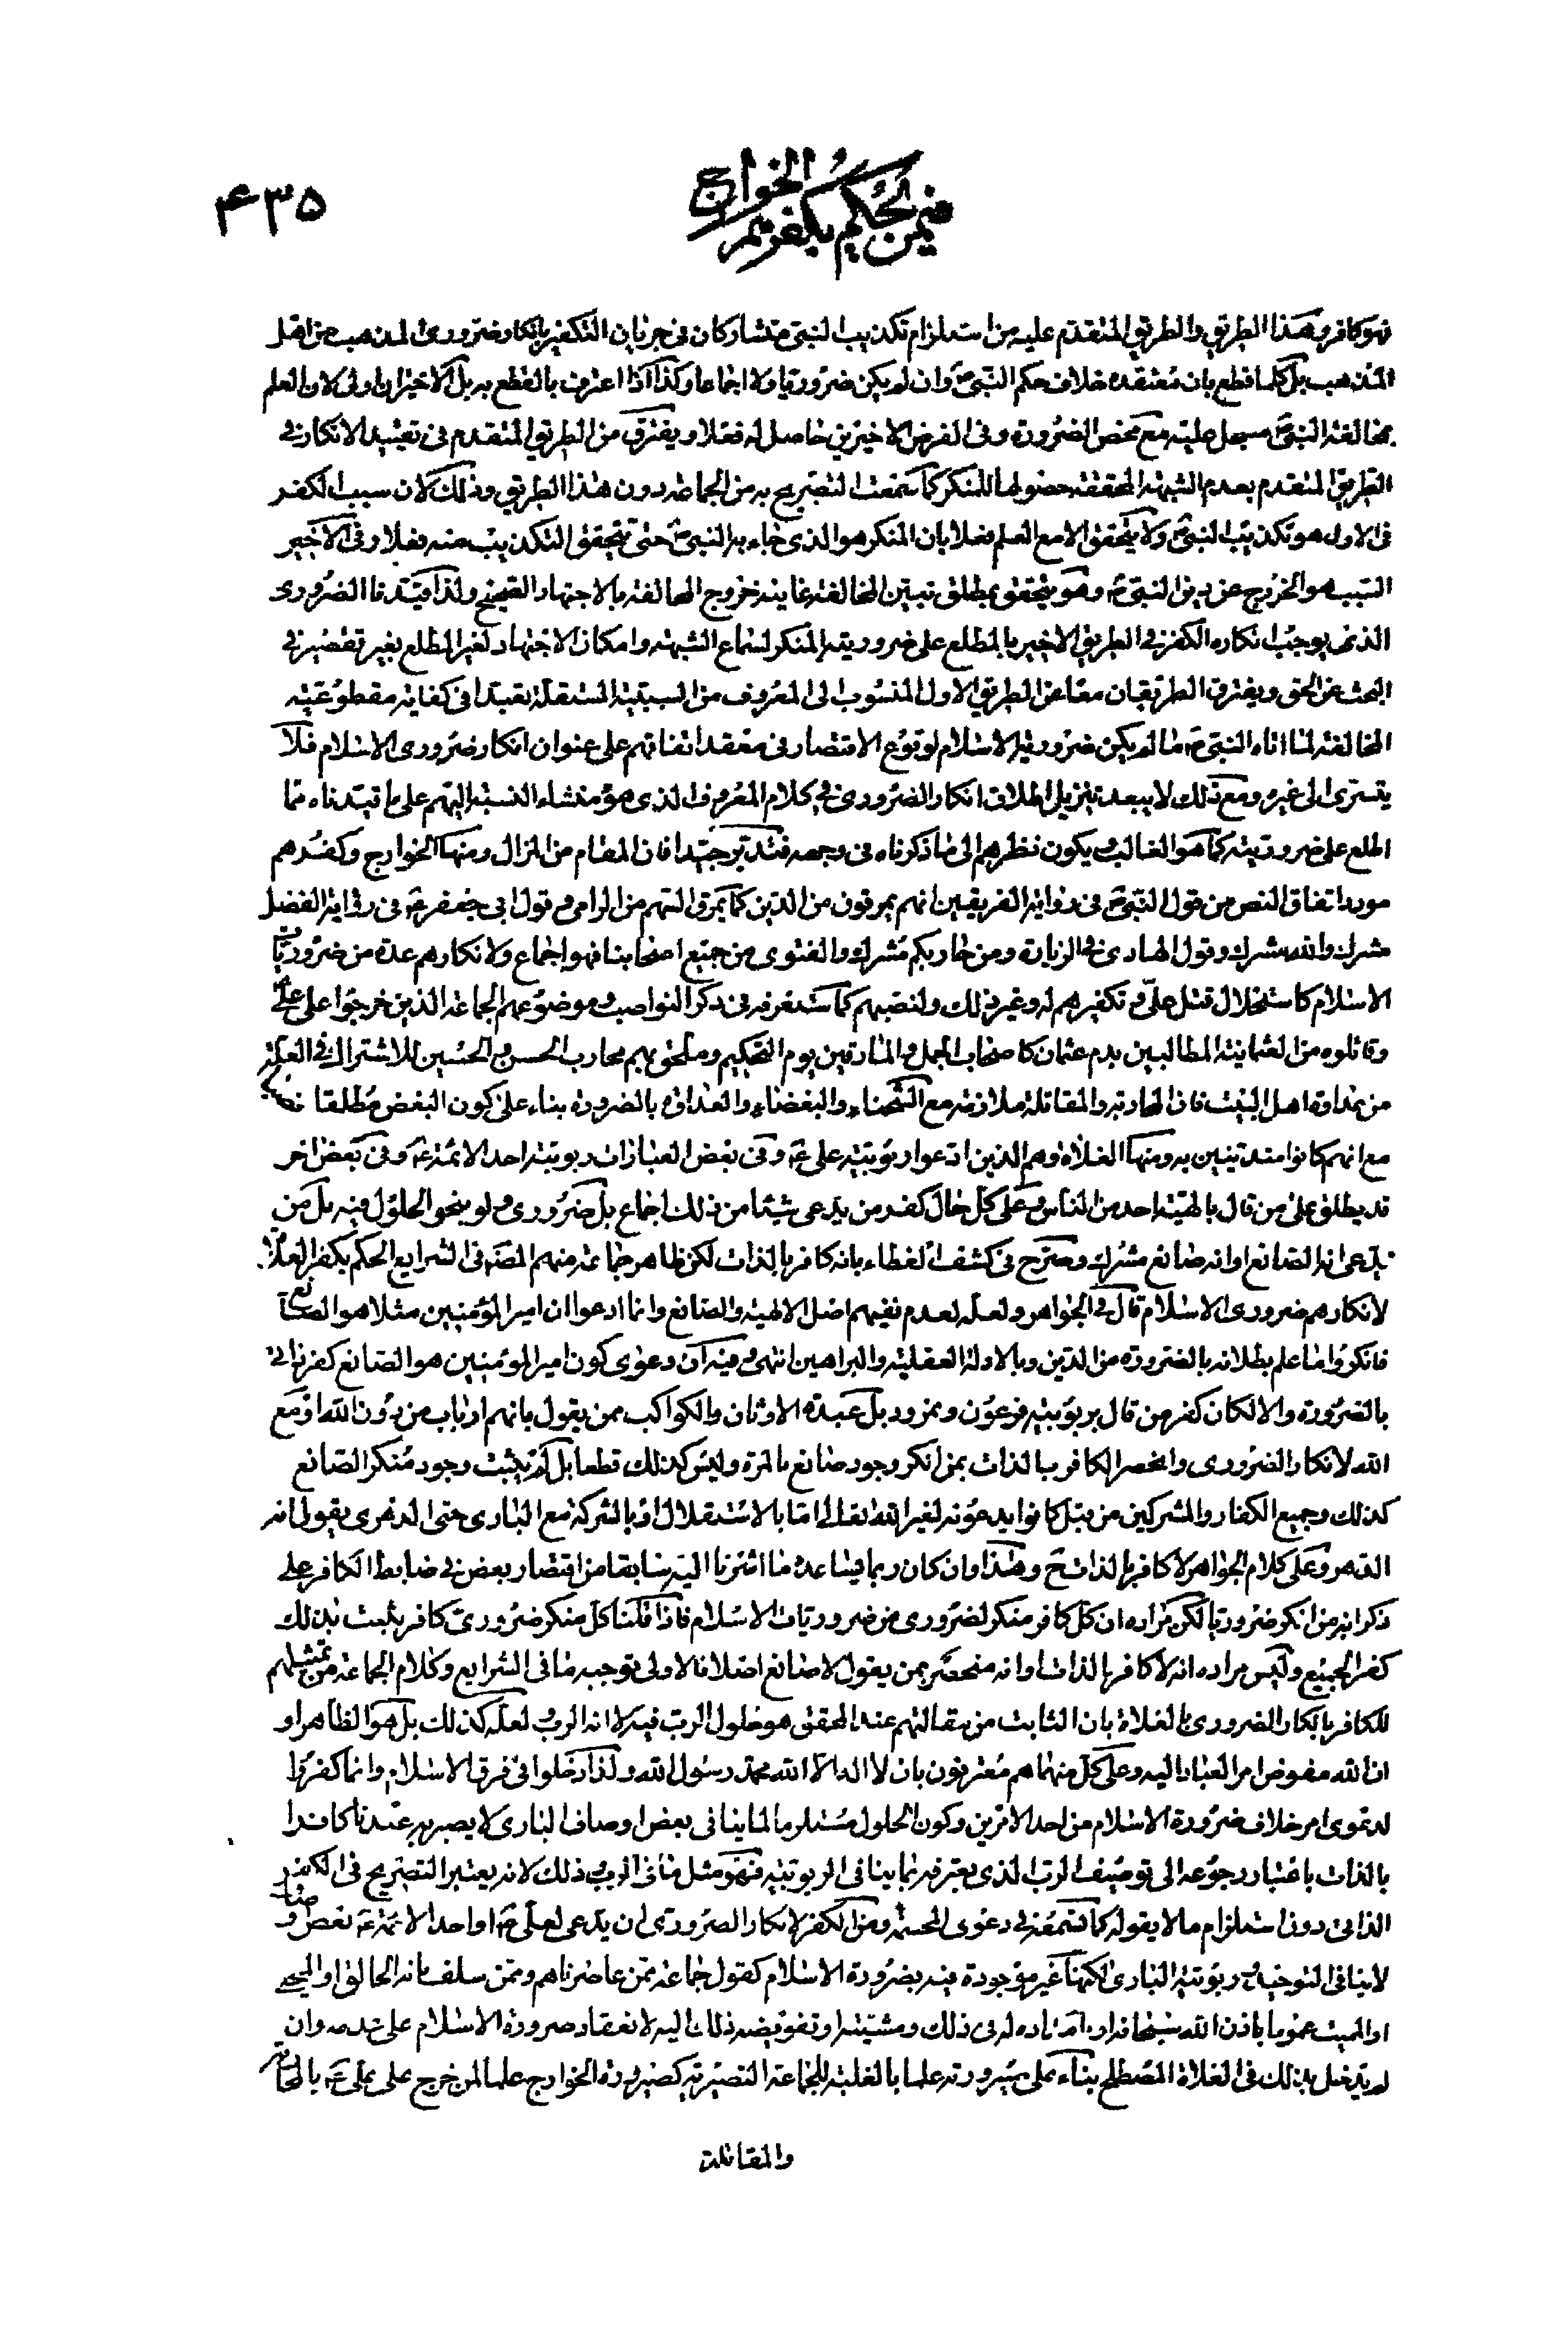 ۴۳۵
فیمن الحکم بکفرهم الخوارج
فهو کافر وهذا الطریق والطریق المتقدم علیه من استلزام تکذیب النبی متشارکان فی جریان التکفیر بانکار ضروری المذهب من اهل
المذهب بل کلما قطع بان معتقده خلاف حکم النبی ص وان لم یکن ضروریا ولا اجماعا وکذا اذا اعترف بالقطع به بل الاخیران اولی لان العلم
بمخالفة النبی ص مسجل علیه مع محض الضرورة وفی الفرض الاخیرین حاصل له فعلا ویفترق من الطریق المتقدم فی تقیید الانکار فی
الطریق المتقدم بعدم الشبهة المحققة حصولها للمنکر کما سمعت التصریح به من الجماعة دون هذا الطریق وذلک لان سبب الکفر
فی الاول هو تکذیب النبی ص ولا یتحقق الا مع العلم فعلا بان المنکر هو الذی جاء به النبی ص حتی یتحقق التکذیب منه فعلا وفی الاخیر
السبب هو الخروج عن دین النبی ص وهو یتحقق بمطلق تبین المخالفة غایته خروج المخالفة بالاجتهاد الصحیح ولذا قیدنا الضروری
الذی یوجب انکاره الکفر فی الطریق الاخیر بالمطلع علی ضروریته المنکر لسماع الشبهة وامکان الاجتهاد لغیر المطلع بغیر تقصیر فی
البحث عن الحق ویفترق الطریقان معا عن الطریق الاول المنسوب الی المعروف من السببیة المستقلة تعبدا فی کفایة مقطوعیة
المخالفة لما اتاه النبی ص ما لم یکن ضروریة الاسلام لوقوع الاقتصار فی معقد اتفاقهم علی عنوان انکار ضروری الاسلام فلا
یتسری الی غیره ومع ذلک لا یبعد تنزیل اطلاق انکار الضروری فی کلام المعروف الذی هو منشاء النسبة الیهم علی ما قیدناه مما
اطلع علی ضروریته کما هو الغالب ویکون نظرهم الی ما ذکرناه فی وجهه فتدبر جیدا فان المقام من المزال ومنها الخوارج وکفرهم
مورد اتفاق النص من قول النبی ص فی روایة الفریقین انهم یمرقون من الدین کما یمرق السهم من الرامی وقول ابی جعفر ع فی روایة الفضل
مشرک والله مشرک وقول الهادی ع فی الزیارة ومن حاربکم مشرک والفتوی من جمیع اصحابنا فهو اجماع ولانکارهم عدة من ضروریات
الاسلام کاستحلال قتل علی ع وتکفیرهم له وغیر ذلک ولنصبهم کما ستعرفه فی ذکر النواصب وموضوعهم الجماعة الذین خرجوا علی علی ع
وقاتلوه من العثمانیة المطالبین بدم عثمان کاصحاب الجمل والمارقین یوم التحکیم وملحق بهم محارب الحسن والحسین للاشتراک فی العلة
من عداوة اهل البیت فان المحاربة والمقاتلة ملازمة مع الشحناء والبغضاء والعداوة بالضرورة بناء علی کون البغض مطلقا نصبا
مع انهم کانوا متدینین به ومنها الغلاة وهم الذین ادعوا ربوبیة علی ع وفی بعض العبارات ربوبیة احد الائمة ع وفی بعض اخر
قد یطلق علی من قال بالهیة احد من الناس وعلی کل حال کفر من یدعی شیئا من ذلک اجماع بل ضروری ولو بنحو الحلول فیه بل من
یدعی انه الصانع او انه صانع مشرک وصرح فی کشف الغطاء بانه کافر بالذات لکن ظاهر جماعة منهم المصنف فی الشرایع الحکم بکفر الغلاة
لانکارهم ضروری الاسلام قال فی الجواهر ولعله لعدم نفیهم اصل الالهیة والصانع وانما ادعوا ان امیر المؤمنین مثلا هو الصانع
فانکروا ما علم بطلانه بالضرورة من الدین وبالادلة العقلیة والبراهین انتهی وفیه ان دعوی کون امیر المؤمنین هو الصانع کفر ذاتی
بالضرورة والا لکان کفر من قال بربوبیة فرعون ونمرود بل عبدة الاوثان والکواکب ممن یقول بانهم ارباب من دون الله او مع
الله لانکار الضروری وانحصر الکافر بالذات بمن انکر وجود صانع بالمرة ولیس کذلک قطعا بل لم یثبت وجود منکر الصانع
کذلک وجمیع الکفار والمشرکین من قبل کانوا یدعونه لغیر الله تعالی اما بالاستقلال او بالشرکة مع الباری حتی الدهری یقول انه
الدهر وعلی کلام الجواهر لا کافر بالذات ح وهذا وان کان ربما یساعده ما اشرنا الیه سابقا من اقتصار بعض فی ضابط الکافر علی
ذکر انه من انکر ضروریا لکن مراده ان کل کافر منکر لضروری من ضروریات الاسلام فاذا قلنا کل منکر ضروری کافر یثبت بذلک
کفر الجمیع ولیس مراده انه لا کافر بالذات وانه منحصر بمن یقول لا صانع اصلا فالاولی توجیه ما فی الشرایع وکلام الجماعة من تمثیلهم
للکافر بانکار الضروری بالغلاة بان الثابت من مقالتهم عند المحقق هو حلول الرب فیه لا انه الرب ولعله کذلک بل هو الظاهر او
ان الله مفوض امر العباد الیه وعلی کل منهما هم معترفون بان لا اله الا الله محمد رسول الله ولذا دخلوا فی فرق الاسلام وانما کفروا
لدعوی امر خلاف ضرورة الاسلام من احد الامرین وکون الحلول مستلزما لما ینافی بعض اوصاف الباری لا یصیر به عندنا کافرا
بالذات باعتبار رجوعه الی توصیف الرب الذی یعترفه بما ینافی الربوبیة فهو مثل نافی الرب وذلک لانه یعتبر التصریح فی الکفر
الذاتی دون استلزام ما لا یقوله کما تسمعه فی دعوی المجسمة ومن الکفر لانکار الضروری ان یدعی لعلی ع او احد الائمة ع بعض صفات و
لا ینافی التوحید وربوبیة الباری لکنها غیر موجودة فیه بضرورة الاسلام کقول جماعة ممن عاصرناهم وممن سلف بانه الخالق او المحیی
او الممیت عموما باذن الله سبحانه او ارادة له فی ذلک ومشیته او تفویضه ذلک الیه لانعقاد ضرورة الاسلام علی عدمه وان
لم یدخل بذلک فی الغلاة المصطلح بناء علی صیرورته علما بالغلبة للجماعة النصیریة کصیرورة الخوارج علما لمن خرج علی علی ع بالمحاربة
والمقاتلة